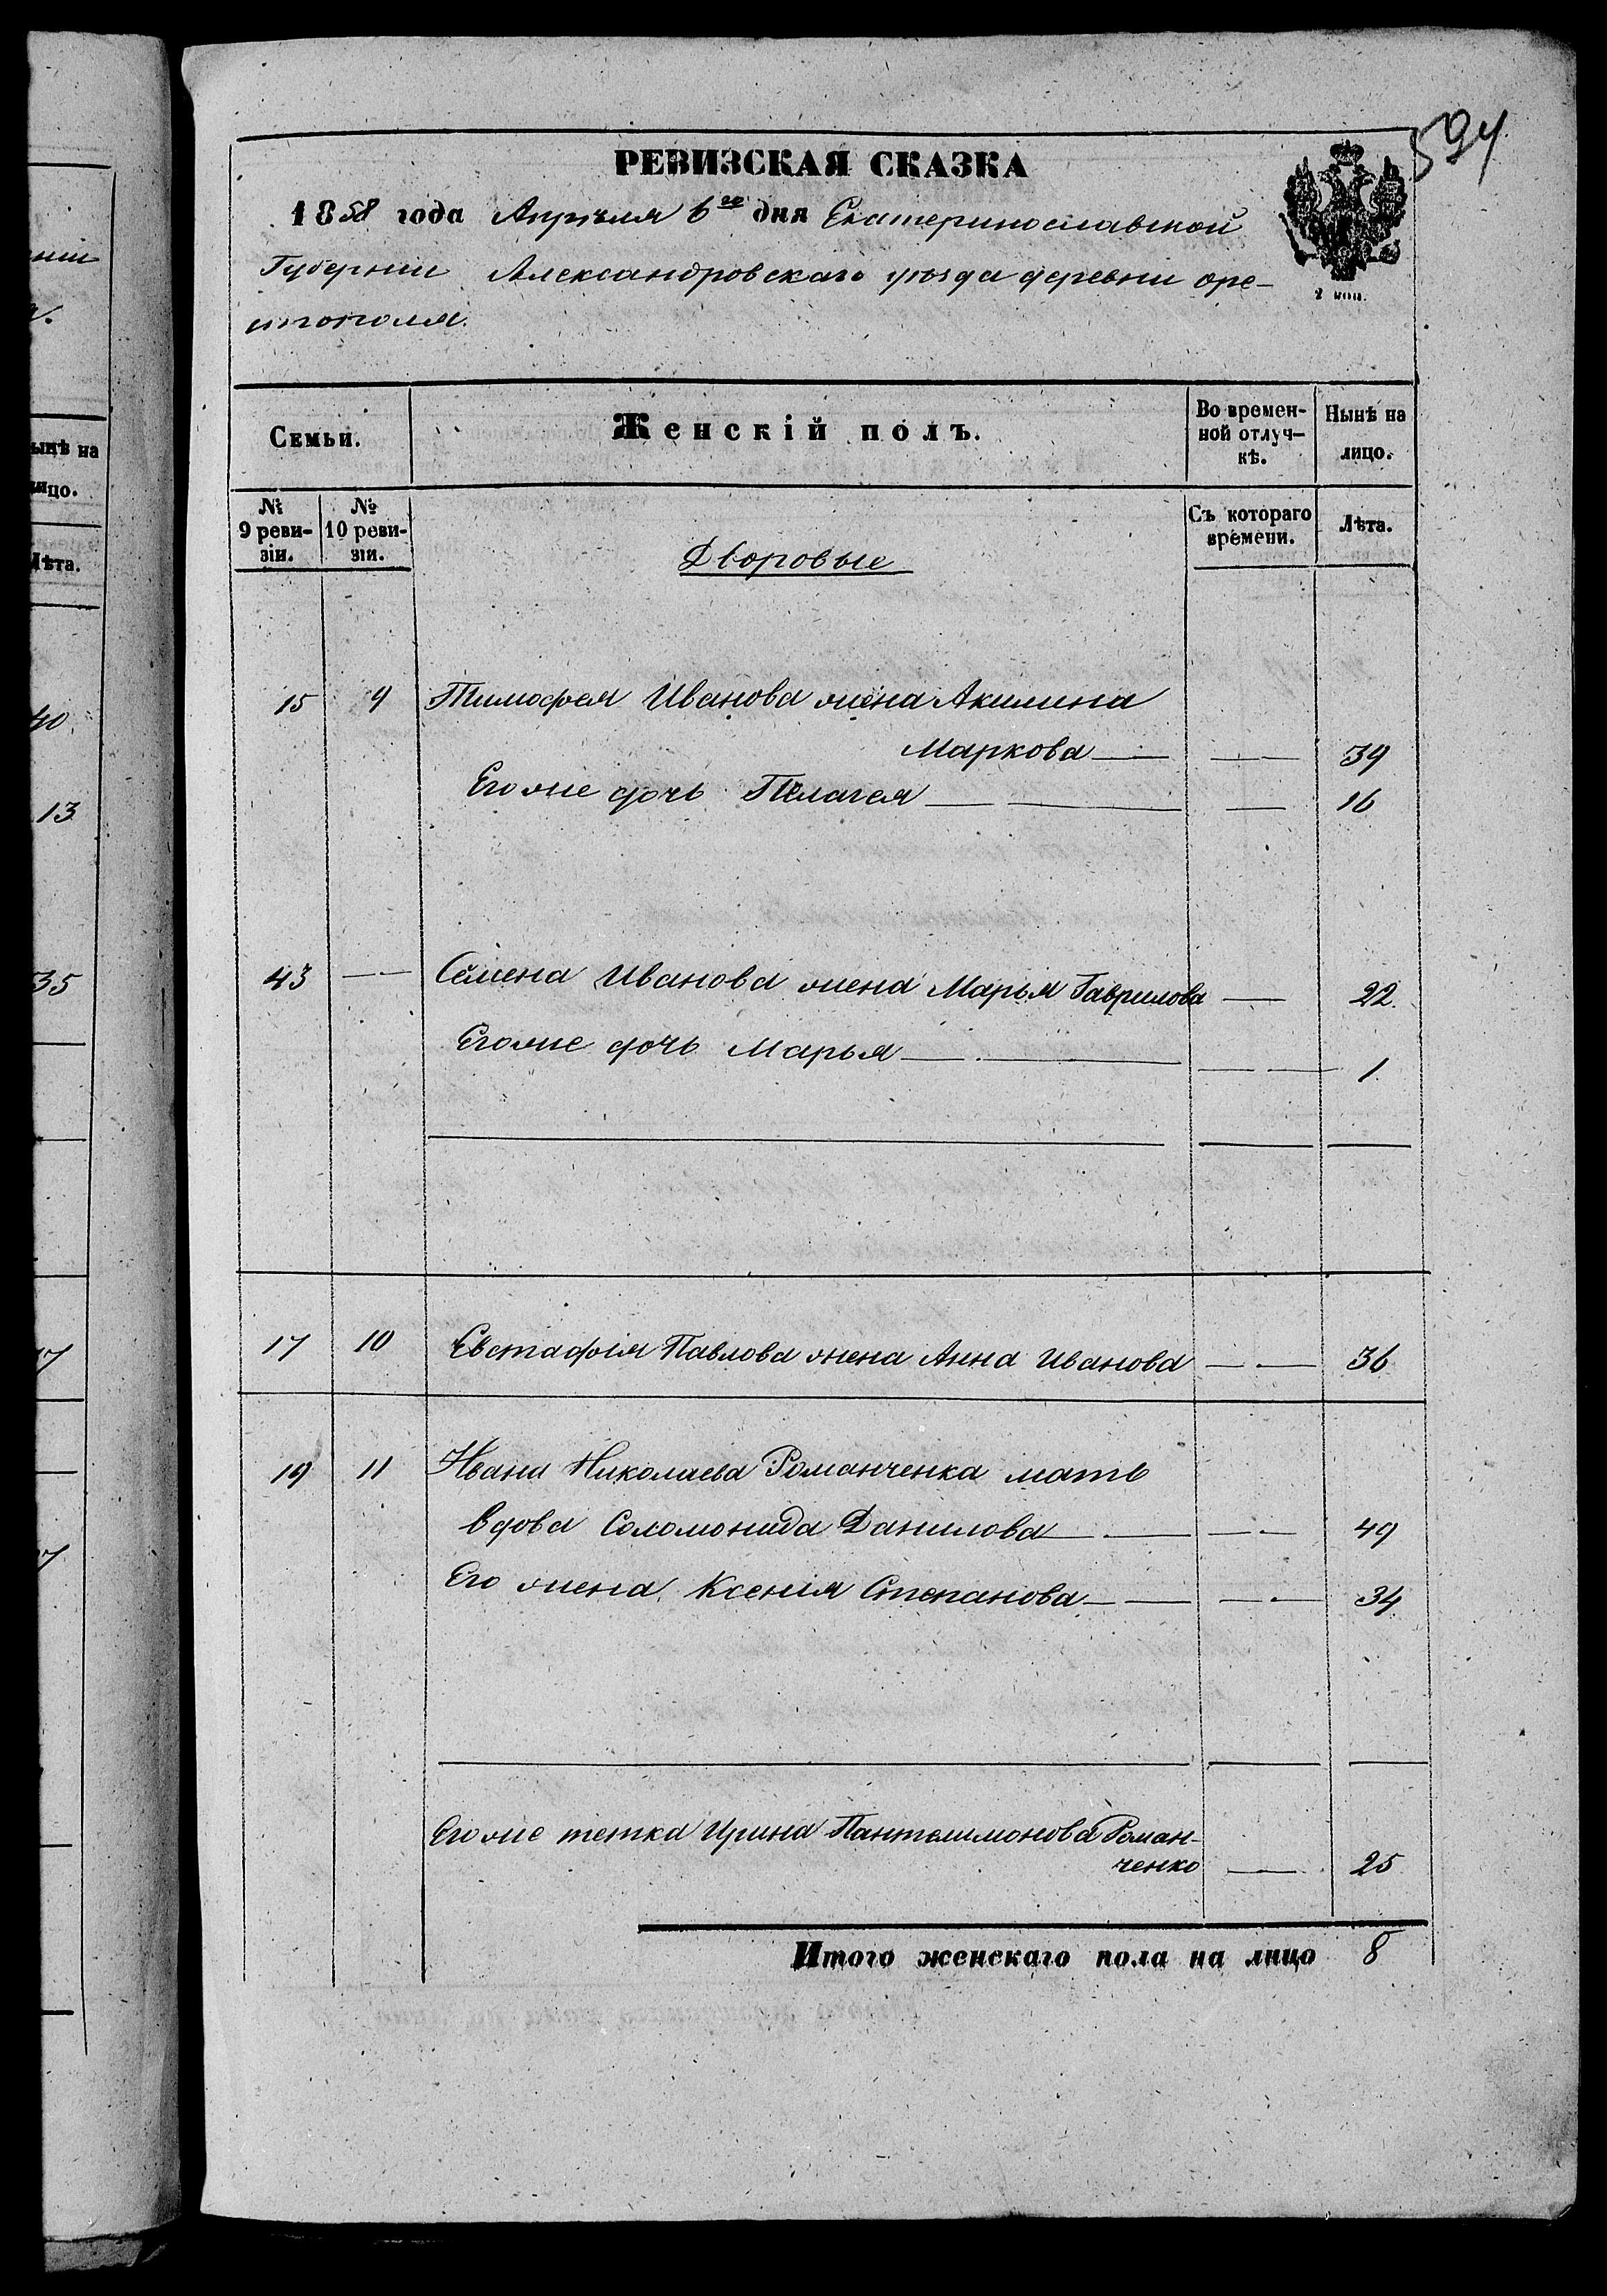 594
РЕВИЗСКАЯ СКАЗКА
1858 года Апрѣля 6го дня Екатеринославской
Губерніи Александровскаго уѣзда деревни Оре-
стополя.
2 коп.
Семьи.
Женскій полъ.
Во времен-
ной отлуч-
кѣ.
Нынѣ на
лицо.
№
9 реви-
зіи.
№
10 реви-
зіи.
Съ котораго
времени.
Лѣта.
Дворовые
15 9 Тимофея Иванова жена Акилина
Маркова 39
Его же дочь Пелагея 16
43 Семена Иванова жена Марья Гаврилова 22
Его же дочь Марья 1
17 10 Евстафія Павлова жена Анна Иванова 36
19 11 Ивана Николаева Романченка мать
вдова Соломонида Данилова 49
Его жена Ксенія Степанова 34
Его же тетка Ирина Пантелимонова Роман-
ченко 25
Итого женскаго пола на лицо 8
ніи
ынѣ на
лицо.
Лѣта.
40
13
35